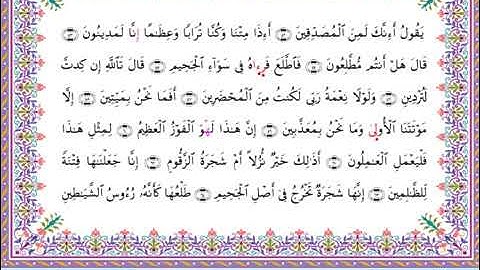 يَقُولُ أَءِنَّكَ لَمِنَ ٱلْمُصَدِّقِينَ ۝ أَءِذَا مِتْنَا وَكُنَّا تُرَابًا وَعِظَـٰمًا إِنَّا لَمَدِينُونَ ۝
قَالَ هَلْ أَنتُم مُّطَّلِعُونَ ۝ فَٱطَّلَعَ فَرَءَاهُ فِى سَوَآءِ ٱلْجَحِيمِ ۝ قَالَ تَٱللَّهِ إِن كِدتَّ
لَتُرْدِينِ ۝ وَلَوْلَا نِعْمَةُ رَبِّى لَكُنتُ مِنَ ٱلْمُحْضَرِينَ ۝ أَفَمَا نَحْنُ بِمَيِّتِينَ ۝ إِلَّا
مَوْتَتَنَا ٱلْأُولَىٰ وَمَا نَحْنُ بِمُعَذَّبِينَ ۝ إِنَّ هَـٰذَا لَهُوَ ٱلْفَوْزُ ٱلْعَظِيمُ ۝ لِمِثْلِ هَـٰذَا
فَلْيَعْمَلِ ٱلْعَـٰمِلُونَ ۝ أَذَٰلِكَ خَيْرٌ نُّزُلًا أَمْ شَجَرَةُ ٱلزَّقُّومِ ۝ إِنَّا جَعَلْنَـٰهَا فِتْنَةً
لِّلظَّـٰلِمِينَ ۝ إِنَّهَا شَجَرَةٌ تَخْرُجُ فِىٓ أَصْلِ ٱلْجَحِيمِ ۝ طَلْعُهَا كَأَنَّهُۥ رُءُوسُ ٱلشَّيَـٰطِينِ